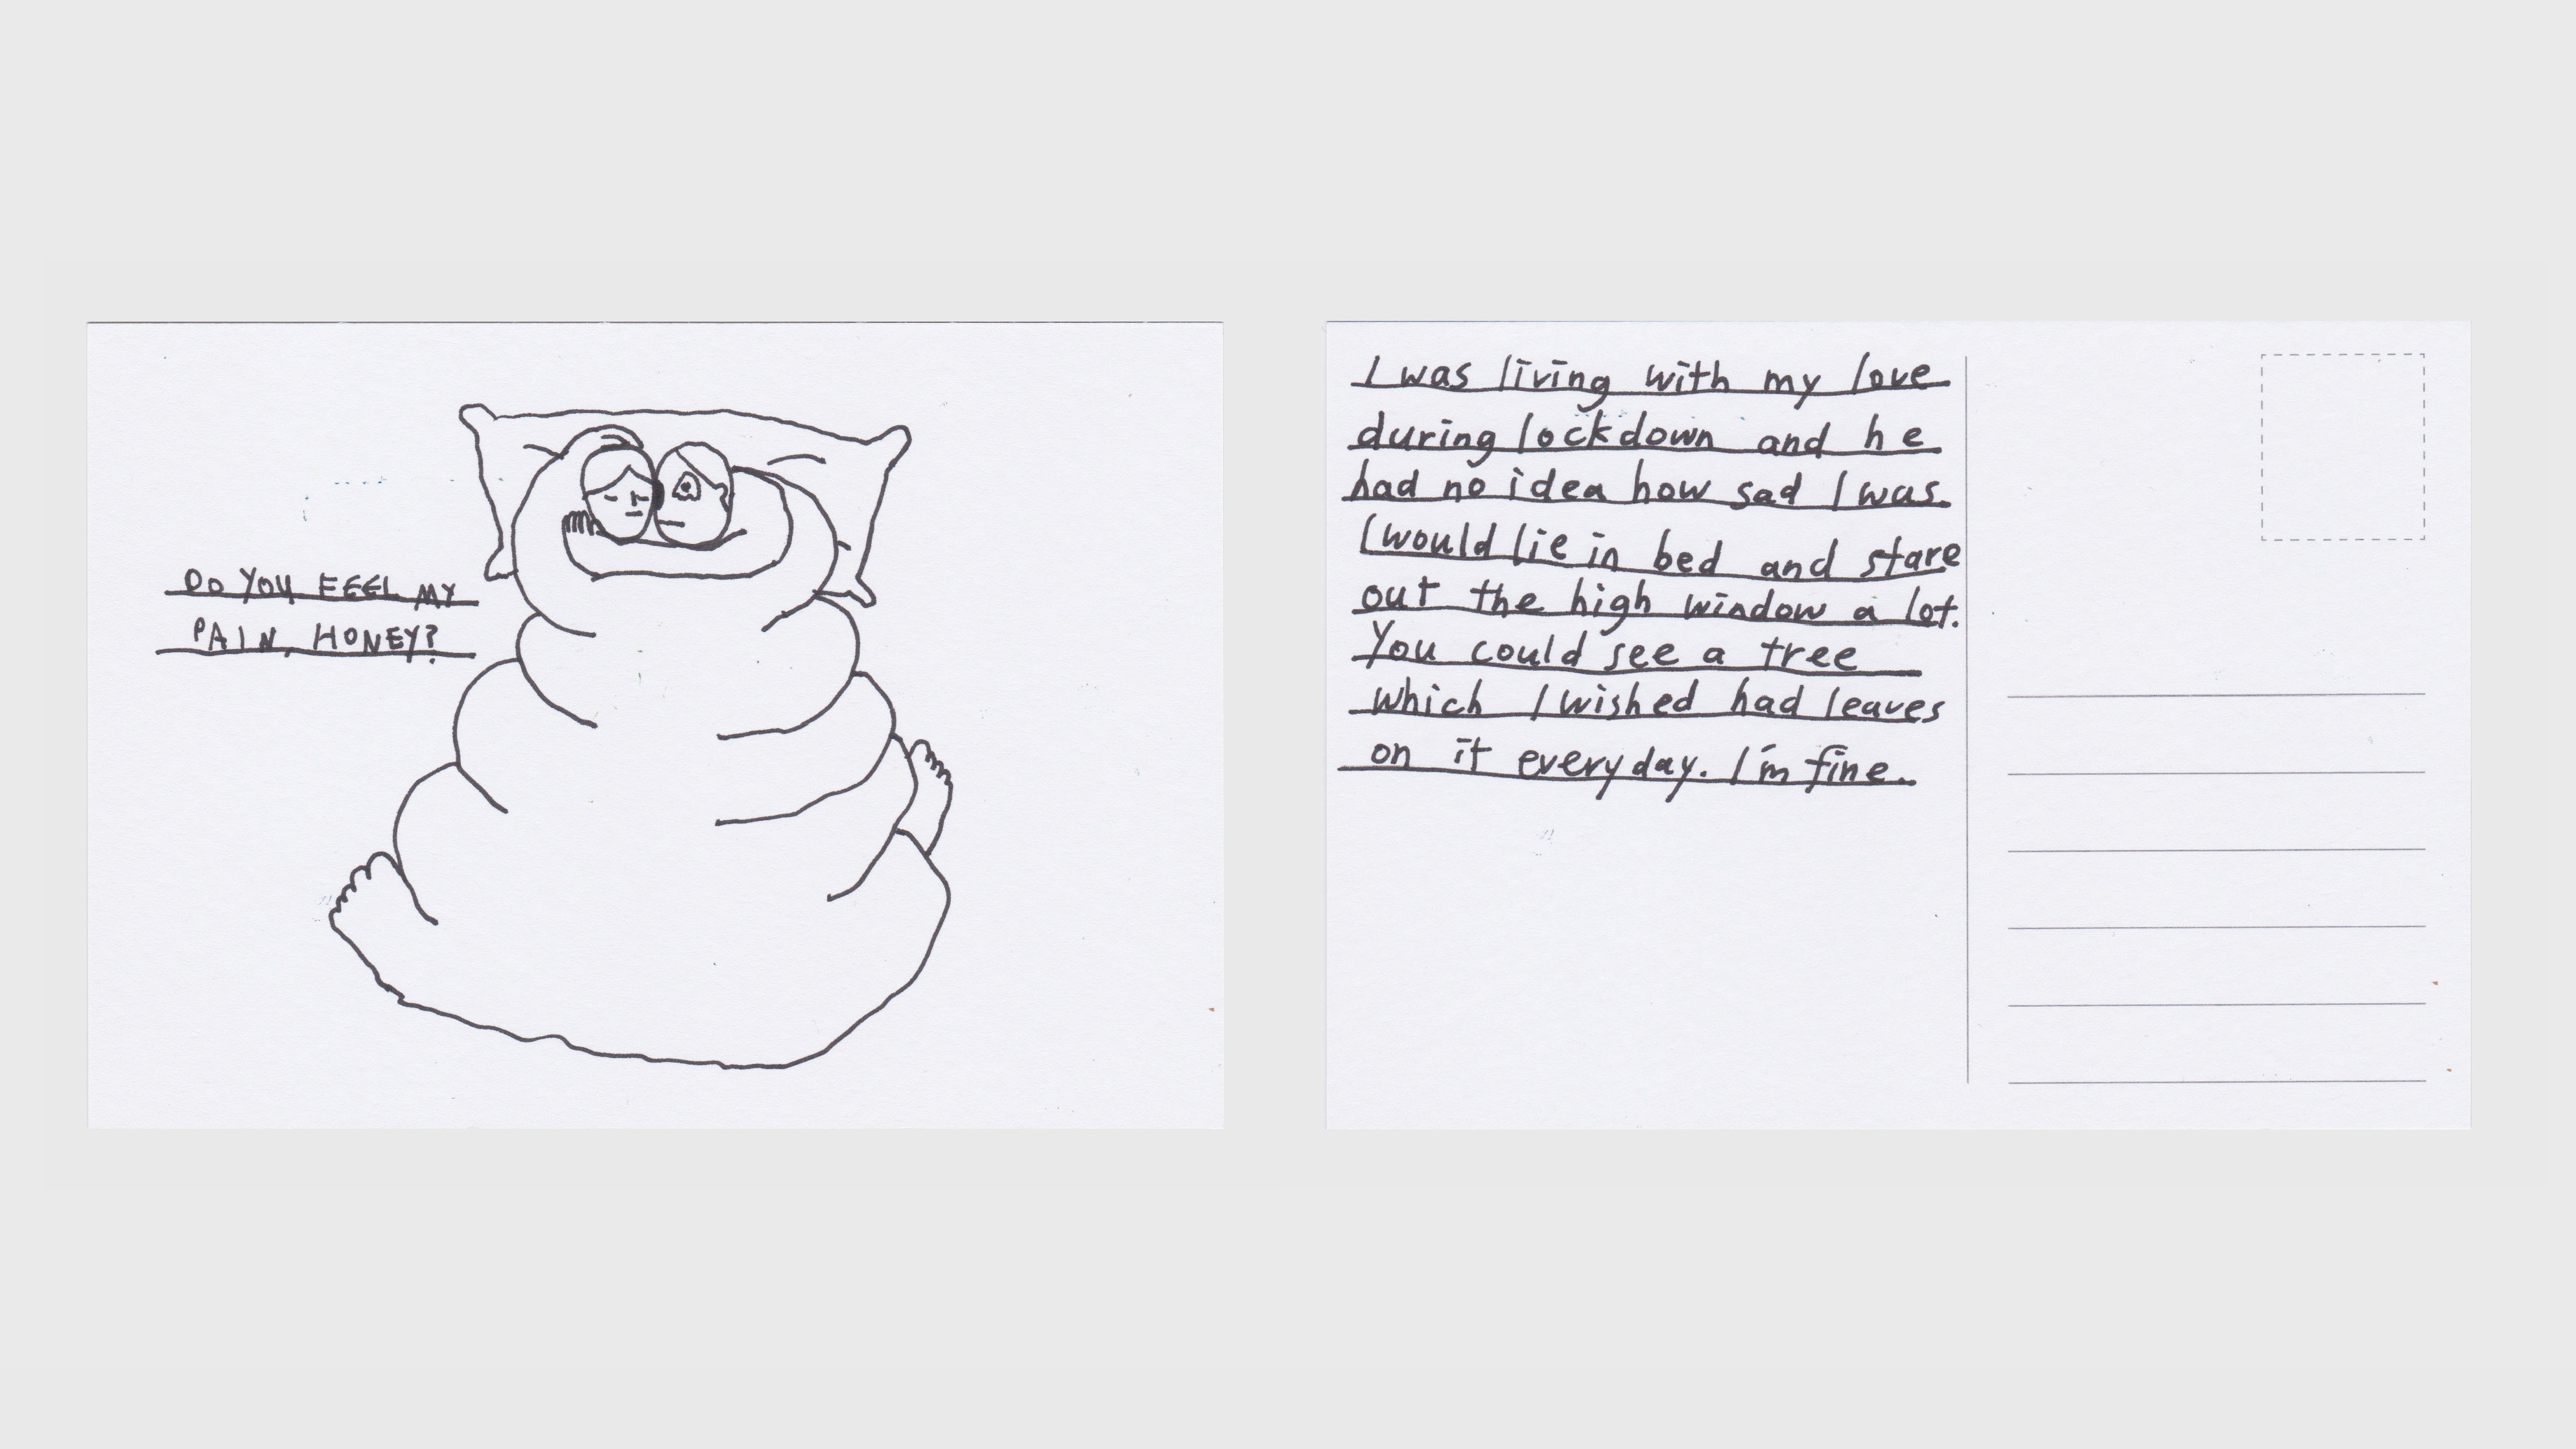 DO YOU FEEL MY
PAIN, HONEY?
I was living with my love
during lockdown and he
had no idea how sad I was.
I would lie in bed and stare
out the high window a lot.
You could see a tree
which I wished had leaves
on it everyday. I'm fine.